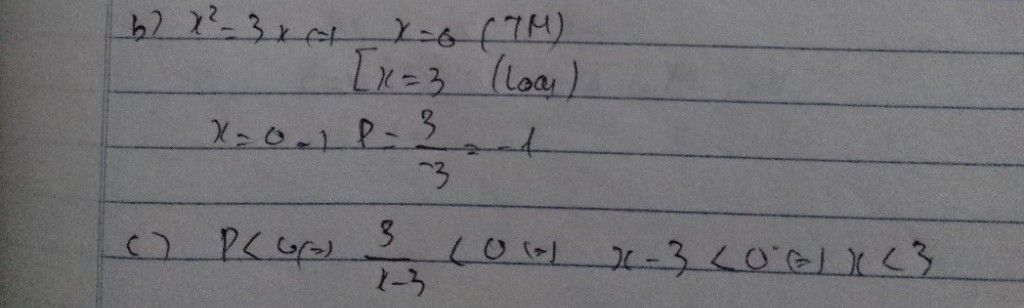 b) x² = 3x <=> x = 0 (TM)
[ x = 3 (loại)
x = 0 => P = 3/-3 = -1
c) P < 0 <=> 3/(x-3) < 0 <=> x - 3 < 0 <=> x < 3